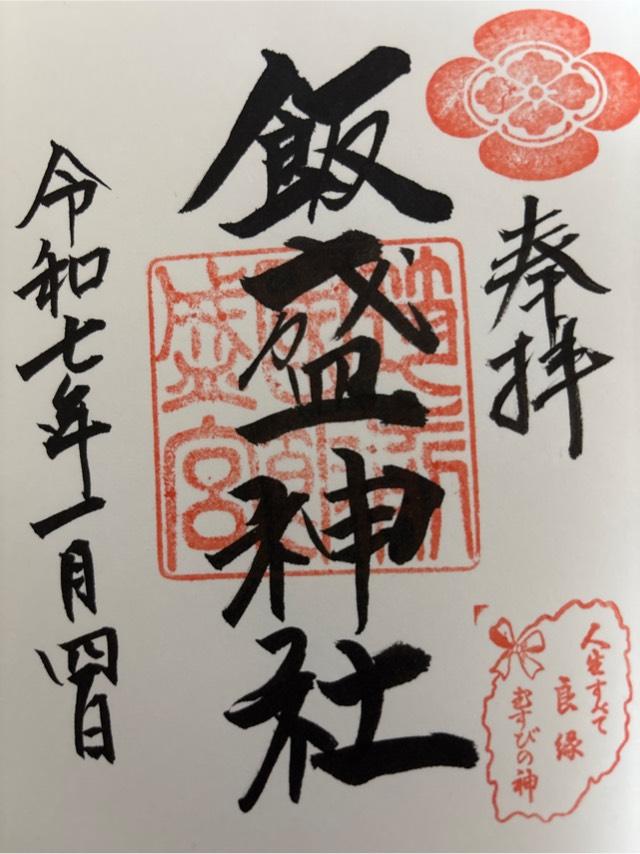 奉拝
飯盛神社
令和七年一月四日
人生すべて
良縁
むすびの神